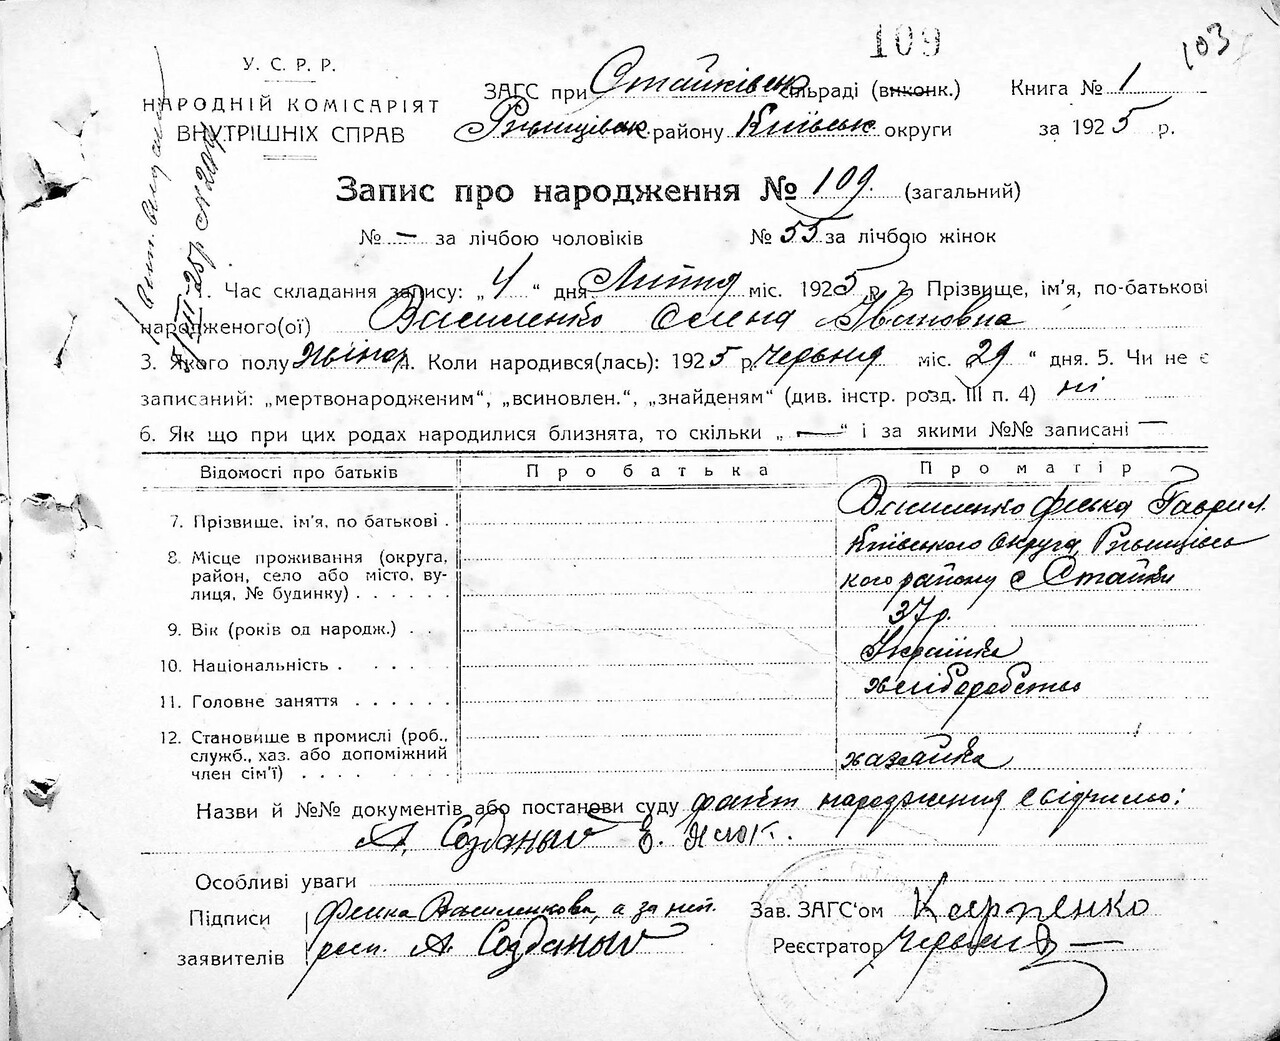 109
103
У. С. Р. Р.
НАРОДНІЙ КОМІСАРІЯТ
ВНУТРІШНІХ СПРАВ
ЗАГС при Стайківськ сільраді (виконк.)
Ржищівськ району Київськ округи
Книга № 1
за 1925 р.
Запис про народження № 109. (загальний)
№ — за лічбою чоловіків № 55 за лічбою жінок
1. Час складання запису: „4“ дня Липня міс. 1925 р. 2. Прізвище, ім'я, по-батькові
народженого(ої) Василенко Олена Івановна
3. Якого полу жіноч. 4. Коли народився(лась): 1925 р. Червня міс. „29“ дня. 5. Чи не є
записаний: „мертвонародженим“, „всиновлен.“, „знайденям“ (див. інстр. розд. III п. 4) ні
6. Як що при цих родах народилися близнята, то скільки „—“ і за якими №№ записані —
Відомості про батьків Про батька Про матір
7. Прізвище, ім'я, по батькові . Василенко Феська Гаврил.
8. Місце проживання (округа, Київського Округа Ржищівсь
район, село або місто, ву- кого району с Стайки
лиця, № будинку) . . . . . .
9. Вік (років од народж.) . . 37 р.
10. Національність . . . . . Українка
11. Головне заняття . . . . . . хліборобство
12. Становище в промислі (роб.,
служб., хаз. або допоміжний хазяйка
член сім'ї) . . . . . . . .
Назви й №№ документів або постанови суду факт народження свідчили:
А. Созданый Є.
Особливі уваги
Підписи Василенкова, а за неї
заявителів расп. А Созданый
Зав. ЗАГС'ом Карпенко
Реєстратор